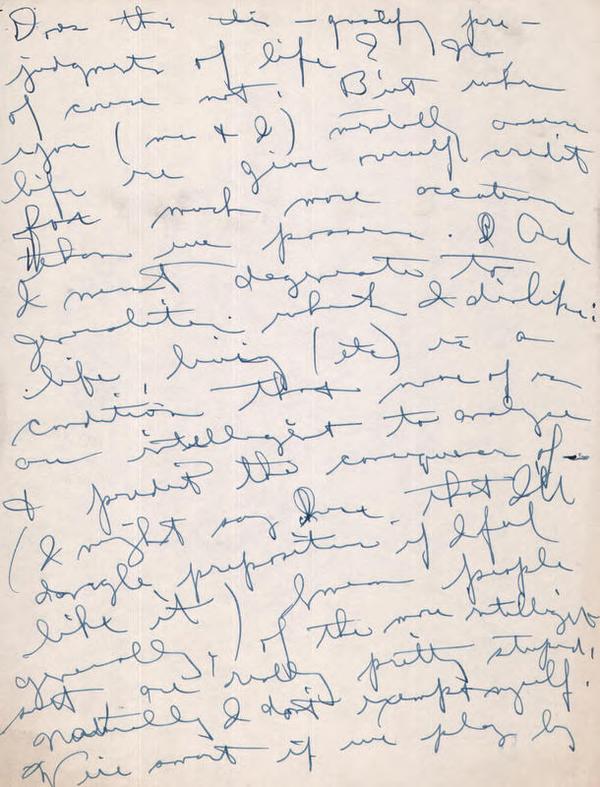 Does this – gratify pre-
judgments of life? No,
of course not. But when
you (me & I) mentally assume
life we give ourself credit
for much more
than we possess. And
I must degenerate to
generalities which I dislike:
life, living (etc) is a
condition that none of us
are intelligent to analyze
& predict the consequences of –
(I might say here that I'll
dangle prepositions if I feel
like it) I mean people
generally, & of the more intelligent
sort are really pretty stupid.
Naturally I don't exempt myself.
We're smart if we play by